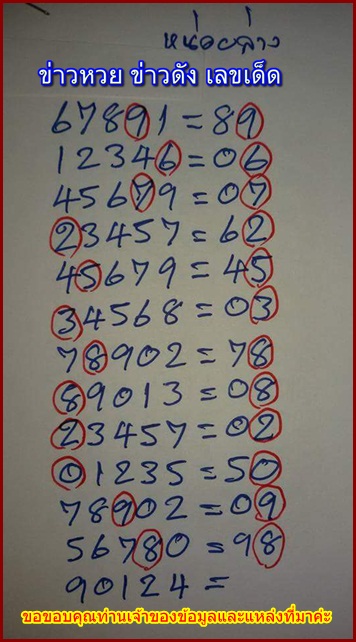 หน่วยล่าง
ข่าวหวย ข่าวดัง เลขเด็ด
67891 = 89
12346 = 06
45679 = 07
23457 = 62
45679 = 45
34568 = 03
78902 = 78
89013 = 08
23457 = 02
01235 = 50
78902 = 09
56780 = 98
90124 =
ขอขอบคุณท่านเจ้าของข้อมูลและแหล่งที่มาค่ะ